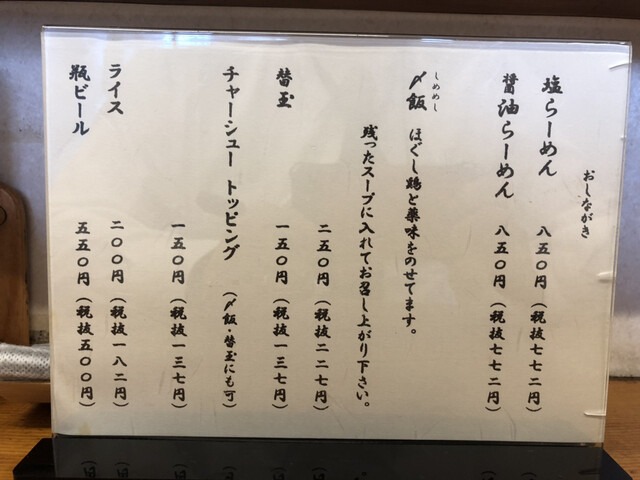 おしながき
塩らーめん 八五〇円(税抜七七二円)
醤油らーめん 八五〇円(税抜七七二円)
しめめし
〆飯 ほぐし鶏と薬味をのせてます。
残ったスープに入れてお召し上がり下さい。
二五〇円(税抜二二七円)
替玉 一五〇円(税抜一三七円)
チャーシュートッピング(〆飯・替玉にも可)
一五〇円(税抜一三七円)
ライス 二〇〇円(税抜一八二円)
瓶ビール 五五〇円(税抜五〇〇円)